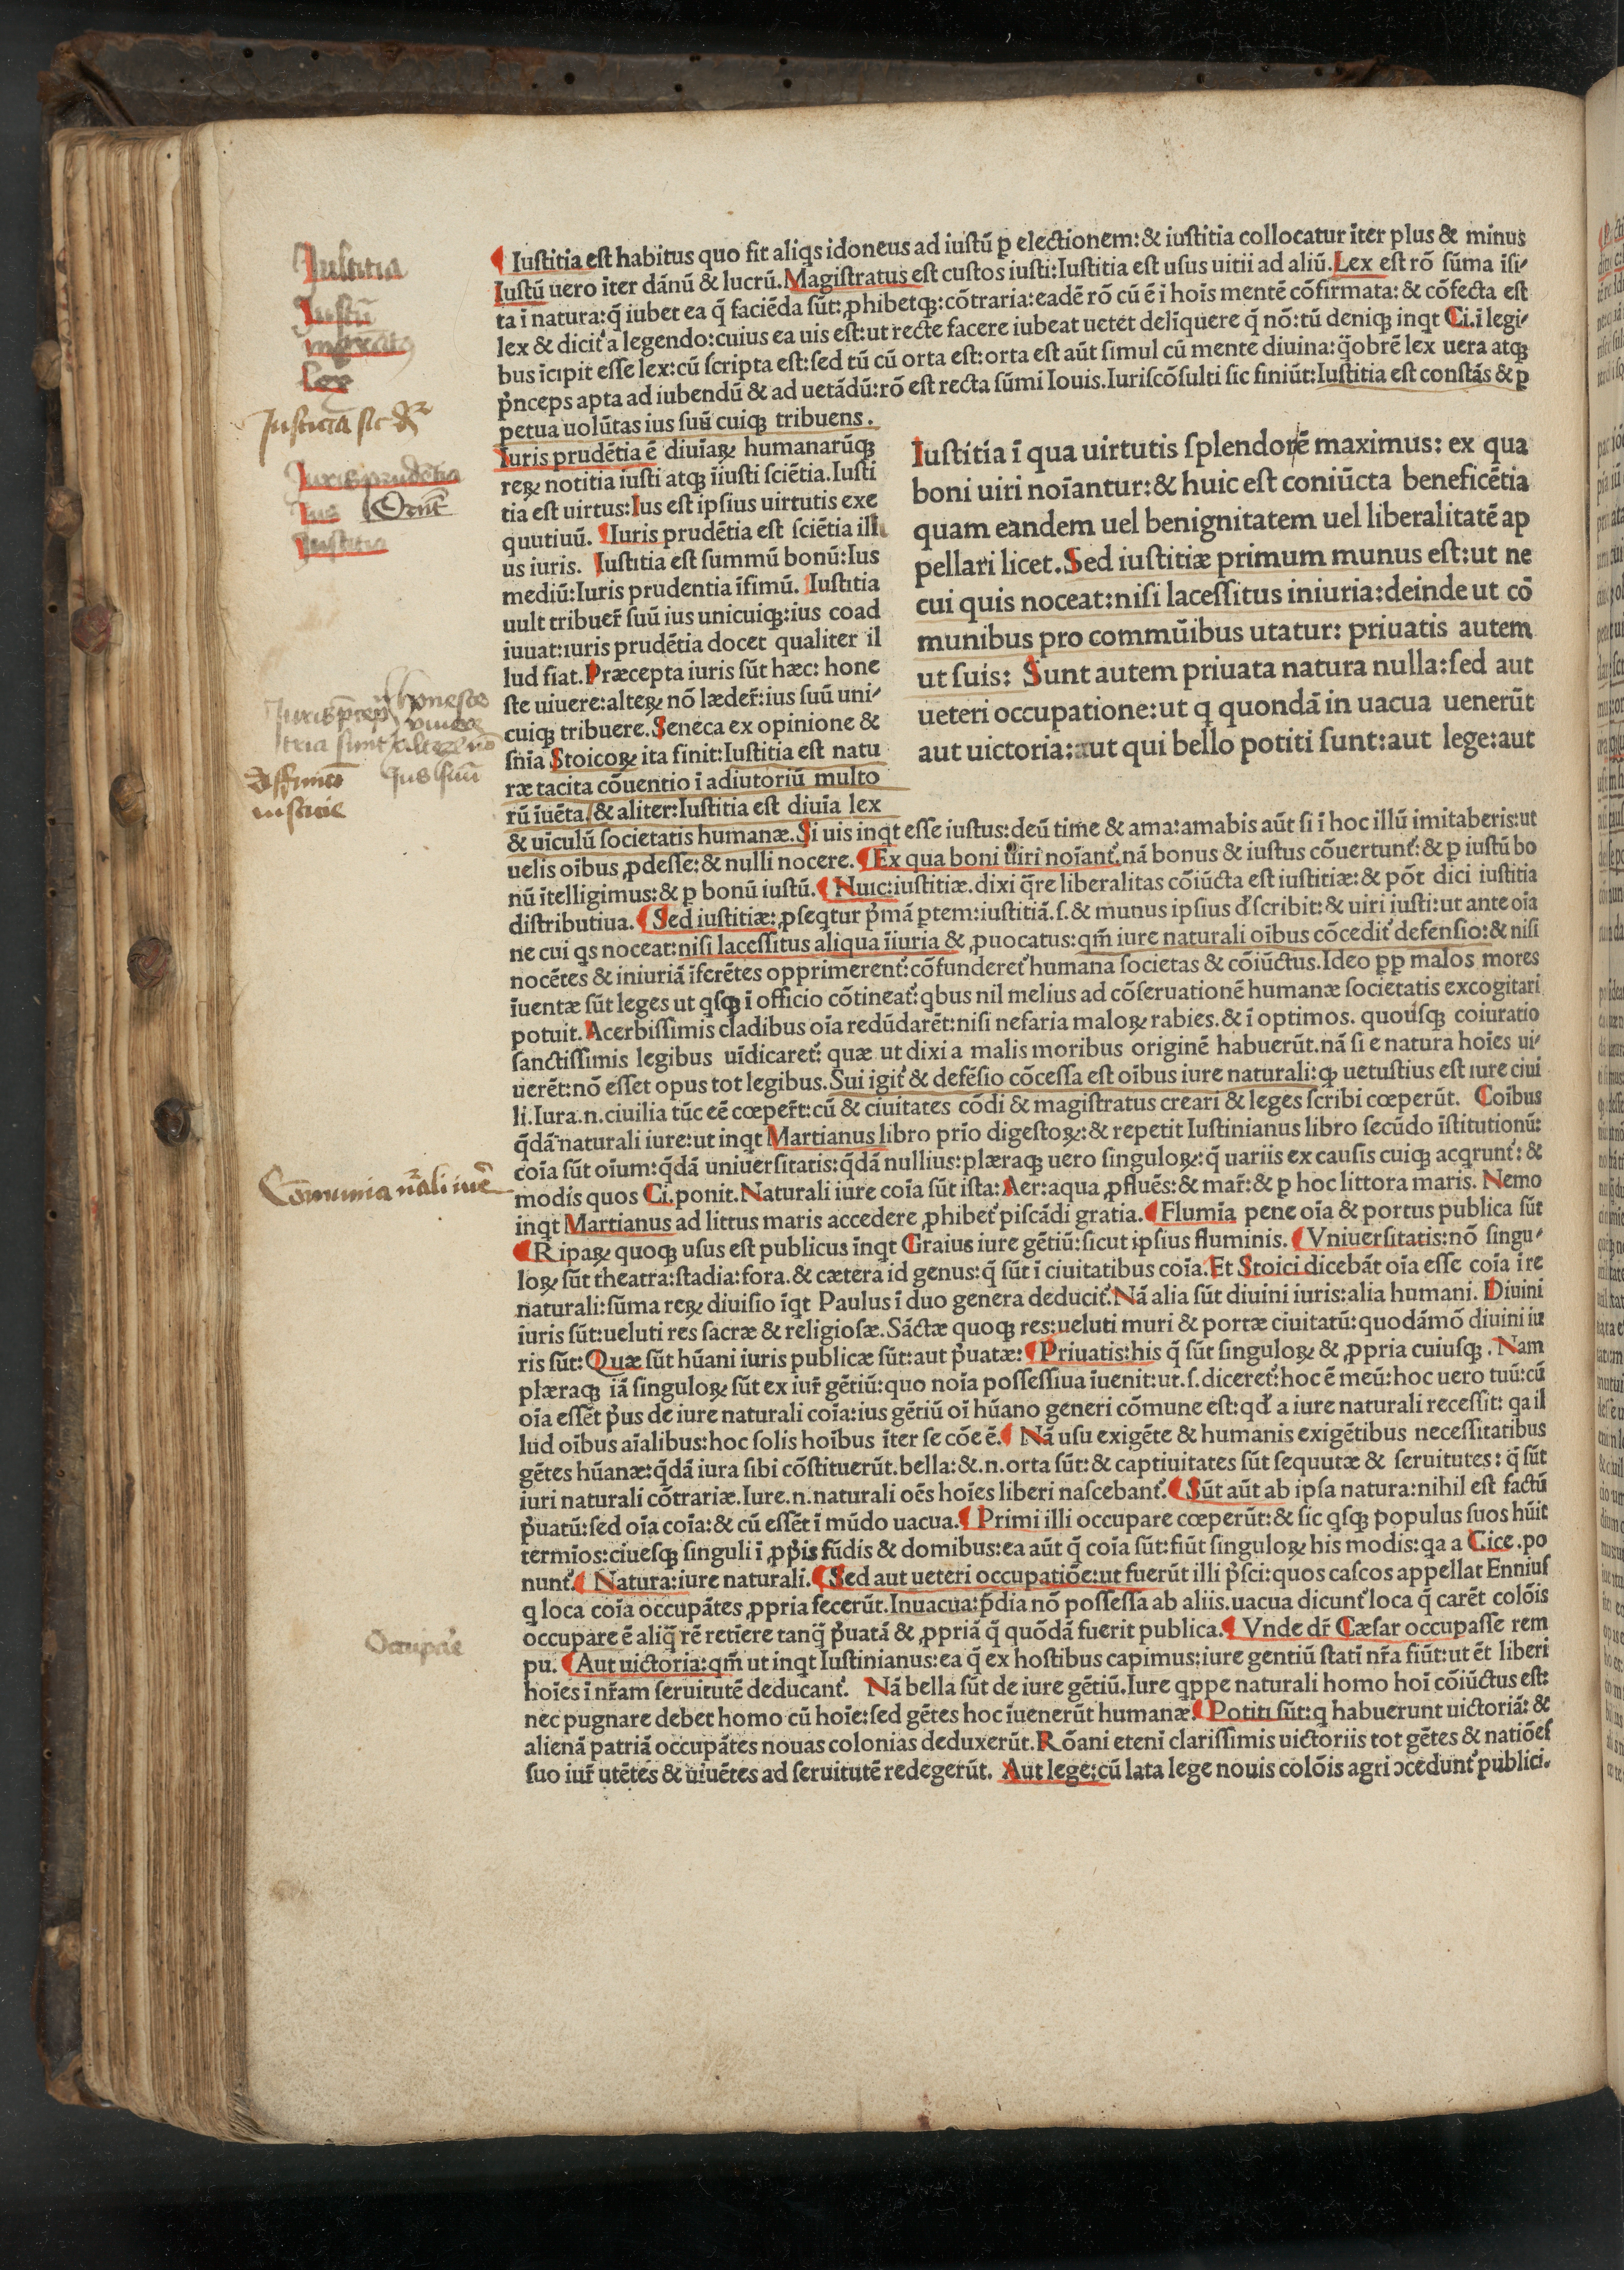 Iustitia
Iustū
magratꝰ
Lex
Iusticia sic dr̄
Iurisprudētia
Ius
Iustitia
honeste
viuere
Cōmunia nāli iure
Occupare
¶ Iuſtitia eſt habitus quo fit aliqs idoneus ad iuſtū ꝑ electionem: & iuſtitia collocatur īter plus & minus
Iuſtū uero īter dānū & lucrū. Magiſtratus eſt cuſtos iuſti: Iuſtitia eſt uſus uitii ad aliū. Lex eſt rō ſūma īſi-
ta ī natura: q̄ iubet ea q̄ faciēda ſūt: ꝓhibetqꝫ: cōtraria: eadē rō cū ē ī hoīs mentē cōfirmata: & cōfecta eſt
lex & dicit᷒ a legendo: cuius ea uis eſt: ut recte facere iubeat uetet delīquere q̄ nō: tū deniqꝫ inqt Ci. ī legi-
bus īcipit eſſe lex: cū ſcripta eſt: ſed tū cū orta eſt: orta eſt aūt ſimul cū mente diuina: q̄obrē lex uera atqꝫ
p̄nceps apta ad iubendū & ad uetādū: rō eſt recta ſūmi Iouis. Iuriſcōſulti ſic finiūt: Iuſtitia eſt conſtās & ꝑ
petua uolūtas ius ſuū cuiqꝫ tribuens.
Iuris prudētia ē diuīaꝝ humanarūqꝫ
reꝝ notitia iuſti atqꝫ īiuſti ſciētia. Iuſti
tia eſt uirtus: Ius eſt ipſius uirtutis exe
quutiuū. ¶ Iuris prudētia eſt ſciētia illi
us iuris. Iuſtitia eſt ſummū bonū: Ius
mediū: Iuris prudentia īfimū. Iuſtitia
uult tribuer̄ ſuū ius unicuiqꝫ: ius coad
iuuat: iuris prudētia docet qualiter il
lud fiat. Præcepta iuris ſūt hæc: hone
ſte uiuere: alteꝝ nō læder̄: ius ſuū uni-
cuiqꝫ tribuere. Seneca ex opinione &
ſn̄ia Stoicoꝝ ita finit: Iuſtitia eſt natu
ræ tacita cōuentio ī adiutoriū multo
rū īuēta. & aliter: Iuſtitia eſt diuīa lex
Iuſtitia ī qua uirtutis ſplendor ē maximus: ex qua
boni uiri noīantur: & huic eſt coniūcta beneficētia
quam eandem uel benignitatem uel liberalitatē ap
pellari licet. Sed iuſtitiæ primum munus eſt: ut ne
cui quis noceat: niſi laceſſitus iniuria: deinde ut cō
munibus pro commūibus utatur: priuatis autem
ut ſuis: Sunt autem priuata natura nulla: ſed aut
ueteri occupatione: ut q quondā in uacua uenerūt
aut uictoria: aut qui bello potiti ſunt: aut lege: aut
& uīculū ſocietatis humanæ. Si uis inqt eſſe iuſtus: deū time & ama: amabis aūt ſi ī hoc illū imitaberis: ut
uelis oībus ꝓdeſſe: & nulli nocere. ¶ Ex qua boni uiri noīant᷒. nā bonus & iuſtus cōuertunt᷒: & ꝑ iuſtū bo
nū ītelligimus: & ꝑ bonū iuſtū. ¶ Nuic: iuſtitiæ. dixi q̄re liberalitas cōiūcta eſt iuſtitiæ: & pōt dici iuſtitia
diſtributiua. ¶ Sed iuſtitiæ: ꝓſeqtur p̄mā ꝑtem: iuſtitiā. ſ. & munus ipſius d̄ſcribit: & uiri iuſti: ut ante oīa
ne cui qs noceat: niſi laceſſitus aliqua īiuria & ꝓuocatus: qm̄ iure naturali oībus cōcedit᷒ defenſio: & niſi
nocētes & iniuriā īferētes opprimerent᷒: cōfunderet᷒ humana ſocietas & cōiūctus. Ideo ꝑꝑ malos mores
īuentæ ſūt leges ut qſqꝫ ī officio cōtineat᷒: qbus nil melius ad cōſeruationē humanæ ſocietatis excogitari
potuit. Acerbiſſimis cladibus oīa redūdarēt: niſi nefaria maloꝝ rabies. & ī optimos. quouſqꝫ coiuratio
ſanctiſſimis legibus uīdicaret᷒: quæ ut dixi a malis moribus originē habuerūt. nā ſi e natura hoīes ui-
uerēt: nō eſſet opus tot legibus. Sui igit᷒ & defēſio cōceſſa eſt oībus iure naturali: qꝫ uetuſtius eſt iure ciui
li. Iura. n. ciuilia tūc eē cœper̄t: cū & ciuitates cōdi & magiſtratus creari & leges ſcribi cœperūt. Coībus
q̄dā naturali iure: ut inqt Martianus libro prīo digeſtoꝝ: & repetit Iuſtinianus libro ſecūdo īſtitutionū:
coīa ſūt oīum: q̄dā uniuerſitatis: q̄dā nullius: plæraqꝫ uero ſinguloꝝ: q̄ uariis ex cauſis cuiqꝫ acqrunt᷒: &
modis quos Ci. ponit. Naturali iure coīa ſūt iſta: Aer: aqua ꝓfluēs: & mar̄: & ꝑ hoc littora maris. Nemo
inqt Martianus ad littus maris accedere ꝓhibet᷒ piſcādi gratia. ¶ Flumīa pene oīa & portus publica ſūt
¶ Ripaꝝ quoqꝫ uſus eſt publicus īnqt Graius iure gētiū: ſicut ipſius fluminis. ¶ Vniuerſitatis: nō ſingu-
loꝝ ſūt theatra: ſtadia: fora. & cætera id genus: q̄ ſūt ī ciuitatibus coīa. Et Stoici dicebāt oīa eſſe coīa ī re
naturali: ſūma reꝝ diuiſio īqt Paulus ī duo genera deducit᷒. Nā alia ſūt diuini iuris: alia humani. Diuini
iuris ſūt: ueluti res ſacræ & religioſæ. Sāctæ quoqꝫ res: ueluti muri & portæ ciuitatū: quodāmō diuini iu
ris ſūt: Quæ ſūt hūani iuris publicæ ſūt: aut p̄uatæ: ¶ Priuatis: his q̄ ſūt ſinguloꝝ & ꝓpria cuiuſqꝫ. Nam
plæraqꝫ iā ſinguloꝝ ſūt ex iur̄ gētiū: quo noīa poſſeſſiua īuenit: ut. ſ. diceret᷒: hoc ē meū: hoc uero tuū: cū
oīa eſſēt p̄us de iure naturali coīa: ius gētiū oī hūano generi cōmune eſt: qd̄ a iure naturali receſſit: qa il
lud oībus aīalibus: hoc ſolis hoībus īter ſe cōe ē. ¶ Nā uſu exigēte & humanis exigētibus neceſſitatibus
gētes hūanæ: q̄dā iura ſibi cōſtituerūt. bella: &. n. orta ſūt: & captiuitates ſūt ſequutæ & ſeruitutes: q̄ ſūt
iuri naturali cōtrariæ. Iure. n. naturali oēs hoīes liberi naſcebant᷒. ¶ Sūt aūt ab ipſa natura: nihil eſt factū
p̄uatū: ſed oīa coīa: & cū eſſēt ī mūdo uacua. ¶ Primi illi occupare cœperūt: & ſic qſqꝫ populus ſuos hūit
termīos: ciueſqꝫ ſinguli ī ꝓp̄is fūdis & domibus: ea aūt q̄ coīa ſūt: fiūt ſinguloꝝ his modis: qa a Cice. po
nunt᷒. ¶ Natura: iure naturali. ¶ Sed aut ueteri occupatiōe: ut fuerūt illi p̄ſci: quos caſcos appellat Ennius
q loca coīa occupātes ꝓpria fecerūt. Inuacua: p̄dia nō poſſeſſa ab aliis. uacua dicunt᷒ loca q̄ carēt colōis
occupare ē aliq̄ rē retīere tanq̄ p̄uatā & ꝓpriā q̄ quōdā fuerit publica. ¶ Vnde dr̄ Cæſar occupaſſe rem
pu. ¶ Aut uictoria: qm̄ ut inqt Iuſtinianus: ea q̄ ex hoſtibus capimus: iure gentiū ſtatī nr̄a fiūt: ut ēt liberi
hoīes ī nr̄am ſeruitutē deducant᷒. Nā bella ſūt de iure gētiū. Iure qppe naturali homo hoī cōiūctus eſt:
nec pugnare debet homo cū hoīe: ſed gētes hoc īuenerūt humanæ. ¶ Potiti ſūt: q habuerunt uictoriā: &
alienā patriā occupātes nouas colonias deduxerūt. Rōani etenī clariſſimis uictoriis tot gētes & natiōes
ſuo iur̄ utētes & uiuētes ad ſeruitutē redegerūt. Aut lege: cū lata lege nouis colōis agri ↄcedunt᷒ publici.